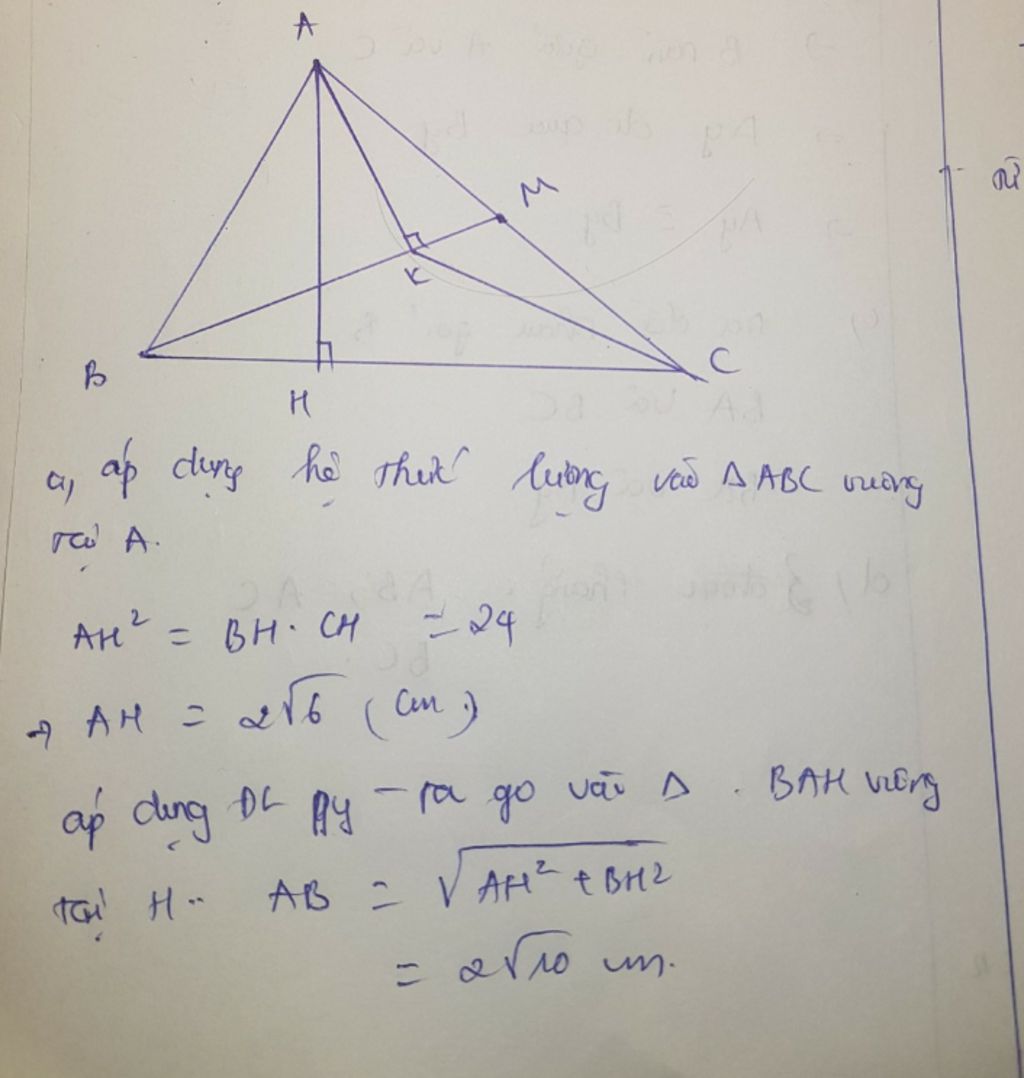 A
M
K
B
H
C
a, áp dụng hệ thức lượng vào Δ ABC vuông
tại A.
AH² = BH . CH = 24
→ AH = 2√6 (cm.)
áp dụng ĐL py - ta go vào Δ . BAH vuông
tại H.. AB = √AH² + BH²
= 2√10 cm.